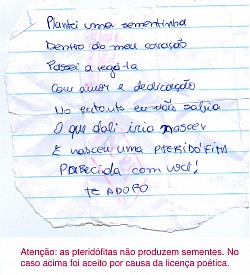 Plantei uma sementinha
Dentro do meu coração
Passei a regá-la
Com amor e dedicação
No entanto eu não sabia
O que dali iria nascer
E nasceu uma PTERIDÓFITA
Parecida com você!
TE ADORO
Atenção: as pteridófitas não produzem sementes. No
caso acima foi aceito por causa da licença poética.